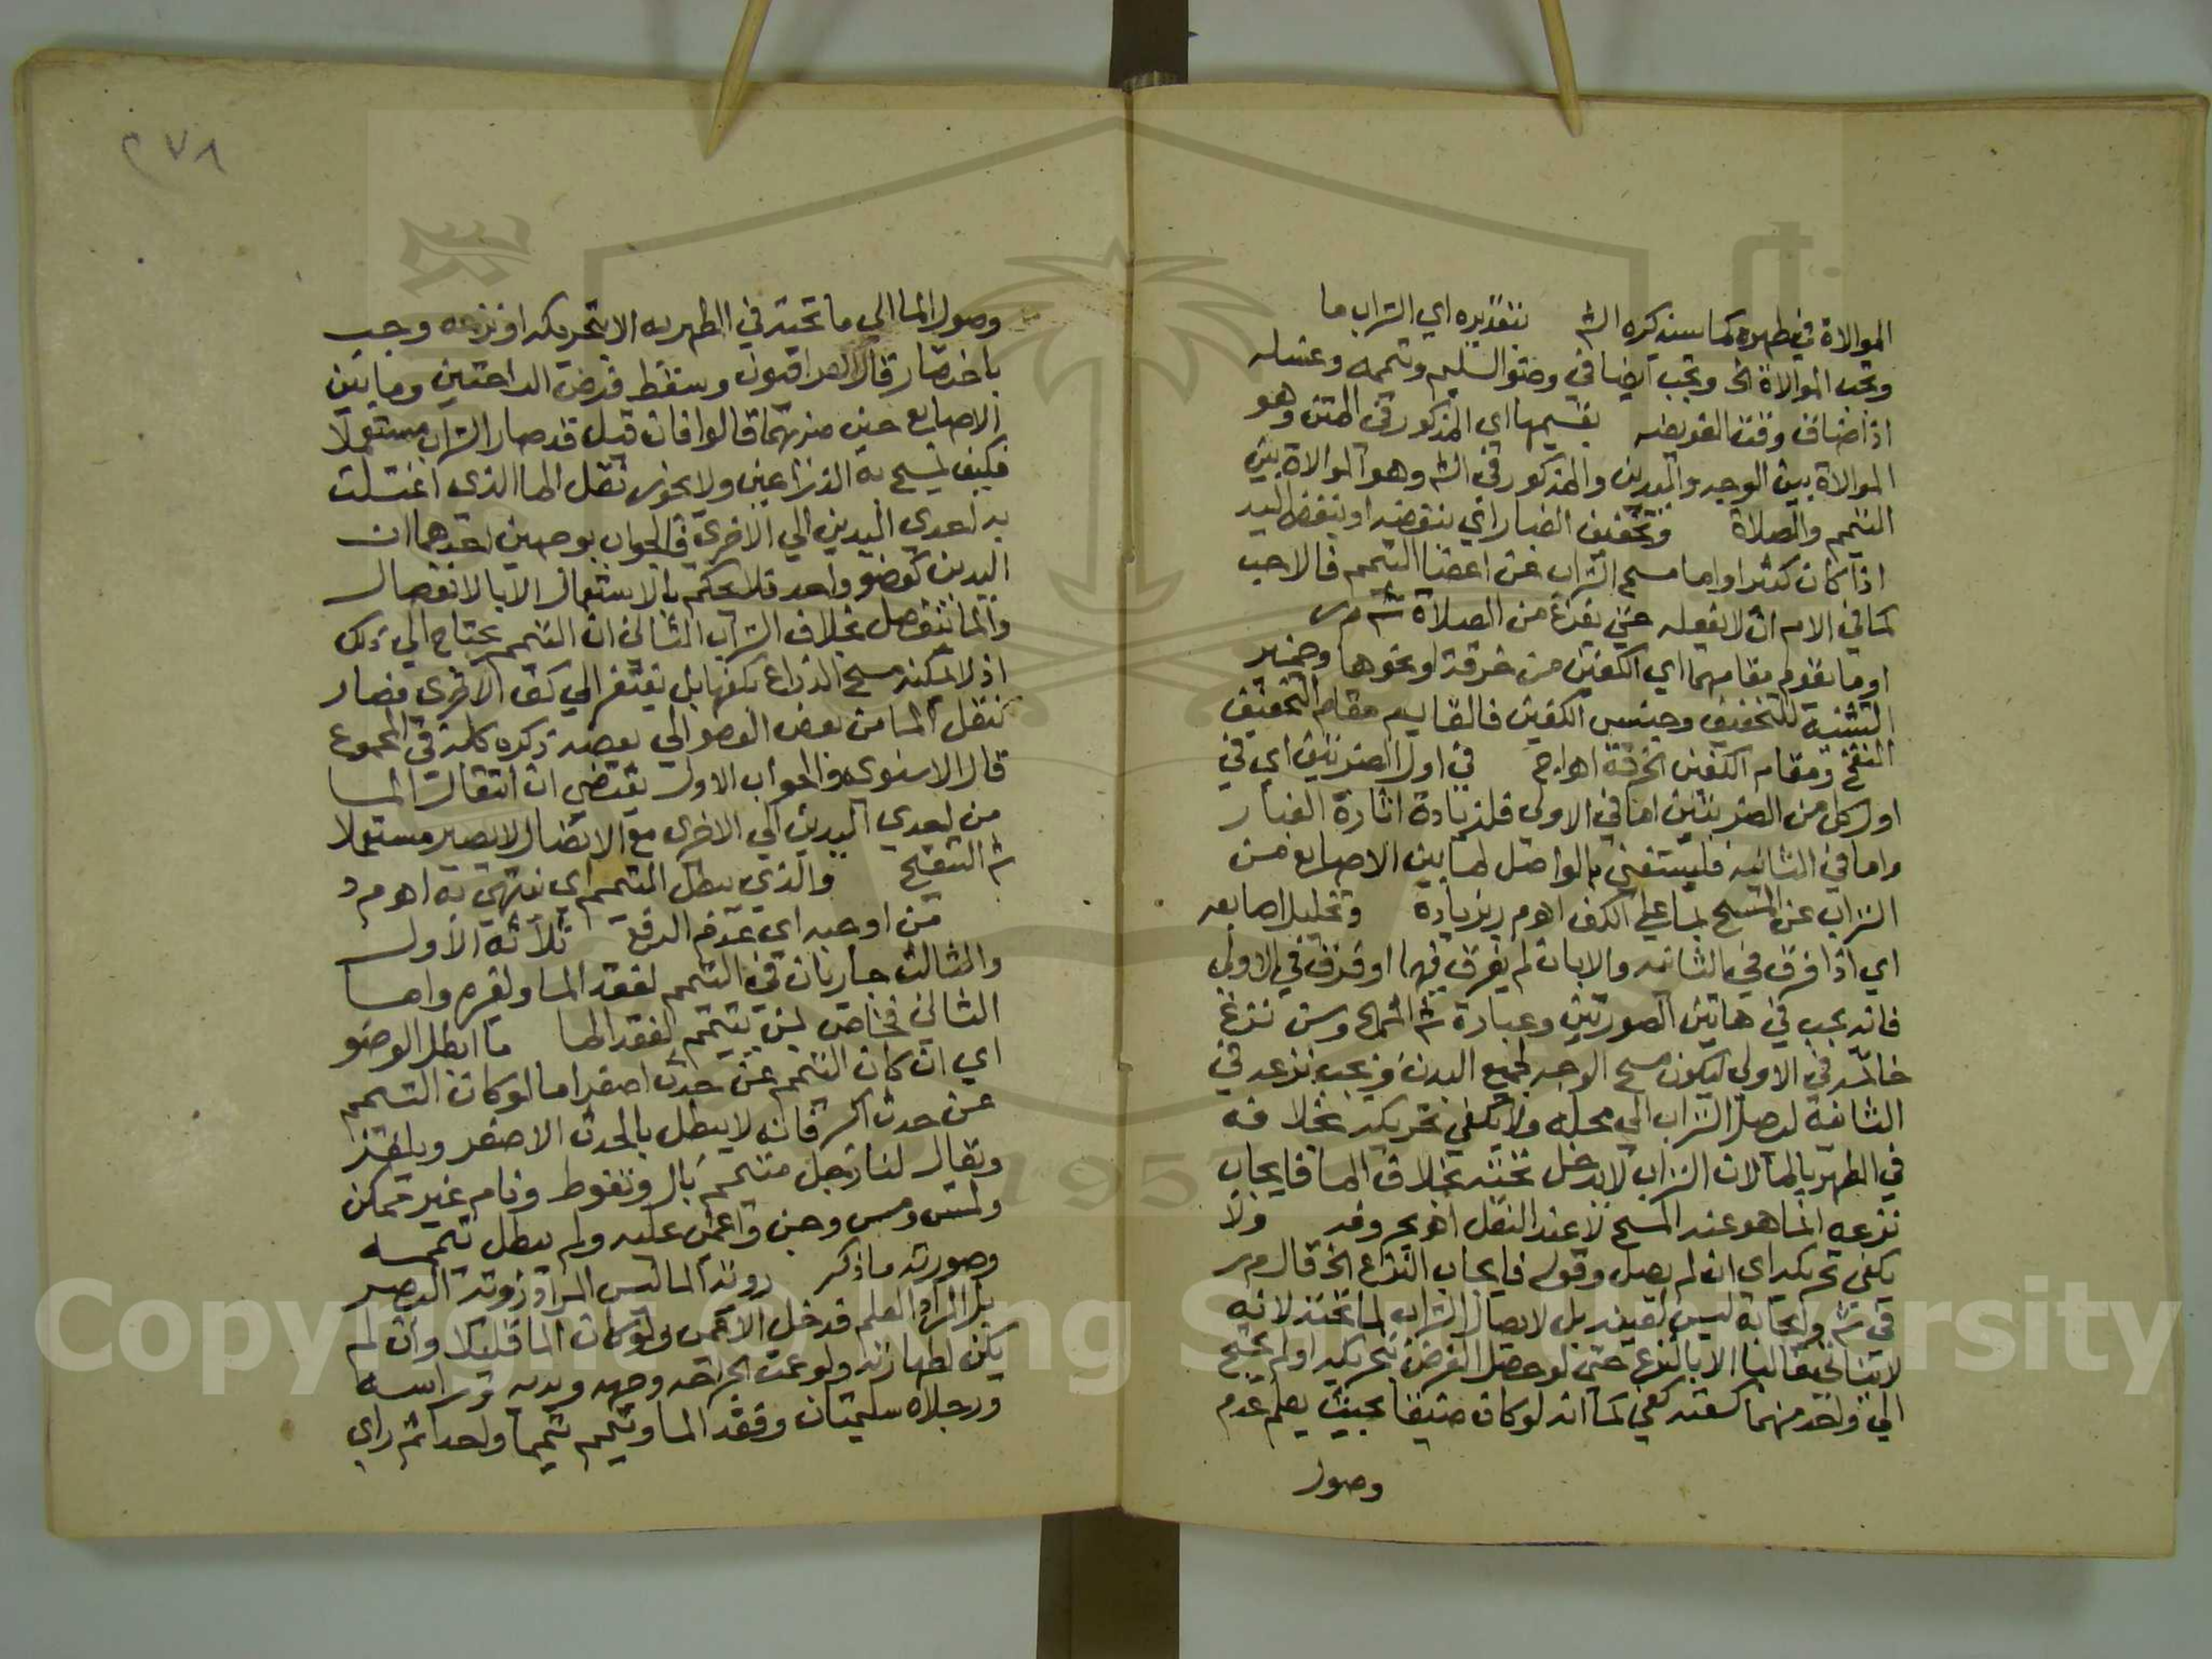 الموالاة في طهره كما سيذكره الش بتقديره اي التراب ما
وتجب الموالاة الخ وتجب ايضا في وضو السليم وتيممه وغسله
اذا ضاق وقت الفريضه بقسيمها اي المذكور في المتن وهو
الموالاة بين الوجه واليدين والمذكور في الش وهو الموالاة بين
التيمم والصلاة وتخفيف الغبار اي بنفضه او بنفض اليد
اذا كان كثيرا واما مسح التراب عن اعضا التيمم فالاحب
كما في الام ان لا يفعله حتي يفرغ من الصلاة ش م ر
او ما يقوم مقامهما اي الكفين من خرقة او نحوها وضمير
التثنية للتخفيف وجنس الكفين فالقايم مقام التخفيف
النفخ ومقام الكفين الخرقة اه اج في اول الضربتين اي في
اول كل من الضربتين اما في الاولى فلزيادة اثارة الغبار
واما في الثانيه فليستغني بالواصل لما بين الاصابع من
التراب عن المسح بما على الكف اه م ر بزيادة وتخليل اصابعه
اي اذا فرق في الثانيه والا بان لم يفرق فيهما او فرق في الاولى
فانه يجب في هاتين الصورتين وعبارة ش المنهج وسن نزع
خاتمه في الاولى ليكون مسح الوجه بجميع اليدين ويجب نزعه في
الثانية ليصل التراب الي محله ولا يكفي تحريكه بخلافه
في الطهر بالما لان التراب لا يدخل تحته بخلاف الما فايجاب
نزعه انما هو عند المسح لا عند النقل اه بحروفه ولا
يكفي تحريكه اي ان لم يصل وقوله فايجاب النزع الخ قال م ر
في ش وايجابه ليس لعينه بل لايصال التراب لما تحته لانه
لا يتاتى غالبا الا بالنزع حتى لو حصل الفرض بتحريكه او لم يحتج
الي واحد منهما لسعته كفي كما انه لو كان ضيقا بحيث يعلم عدم
وصول
٢٧٨
وصول الما الي ما تحته في الطهر به الا بتحريكه او نزعه وجب
باختصار قال العراقيون وسقط فرض الراحتين وما بين
الاصابع حين ضربهما قالوا فان قيل قد صار التراب مستعملا
فكيف يمسح به الذراعين ولا يجوز نقل الما الذي اغتسلت
به احدي اليدين الي الاخري فالجواب بوجهين احدهما ان
اليدين كعضو واحد فلا يحكم بالاستعمال الا بالانفصال
والما ينفصل بخلاف التراب الثاني ان التيمم يحتاج الي ذلك
اذ لا يمكنه مسح الذراع بكفها بل يفتقر الي كف الاخرى فصار
كنقل الما من بعض العضو الي بعضه ذكره كله في المجموع
قال الاسنوي والجواب الاول يقتضي ان انتقال الما
من احدي اليدين الي الاخرى مع الاتصال لا يصير مستعملا
ش التنقيح والذي يبطل التيمم اي ينتهي به اه م د
من اوجبه اي عدم الرفع ثلاثة الاول
والثالث جاريان في التيمم لفقد الما ولغيره واما
الثاني فخاص بمن يتيمم لفقد الما ما ابطل الوضو
اي ان كان التيمم عن حدث اصغر اما لو كان التيمم
عن حدث اكبر فانه لا يبطل بالحدث الاصغر ويلغز
ويقال لنا رجل متيمم بال وتغوط ونام غير ممكن
ولمس ومس وجن واغمي عليه ولم يبطل تيممه
وصورته ما ذكر روية الما ليس المراد رويته البصر
بل المراد العلم فدخل الاعمى ولو كان الما قليلا وان لم
يكن لطهارته ولو عمت الجراحه وجهه ويديه وراسه
ورجلاه سليمتان وفقد الما وتيمم تيمما واحدا ثم راي